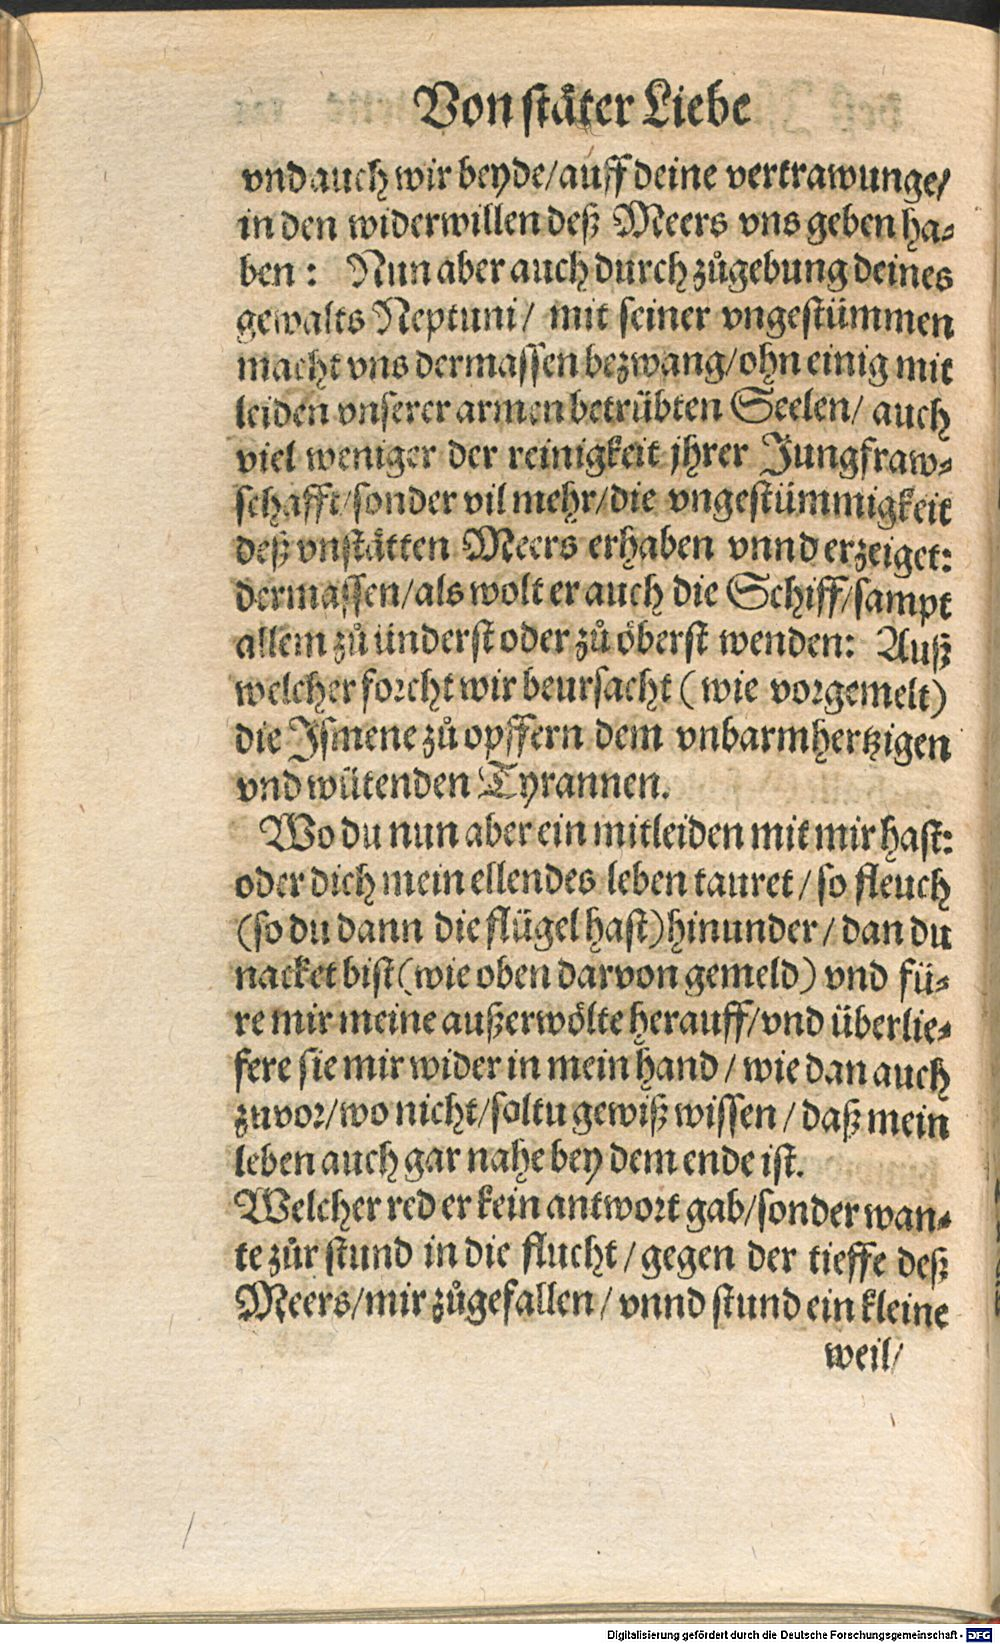 Von ståter Liebe
vnd auch wir beyde/auff deine vertrawunge/
in den widerwillen deß Meers vns geben ha-
ben: Nun aber auch durch zůgebung deines
gewalts Neptuni/ mit seiner vngestümmen
macht vns dermassen bezwang/ohn einig mit
leiden vnserer armen betrübten Seelen/ auch
viel weniger der reinigkeit jhrer Jungfraw-
schafft/sonder vil mehr/die vngestümmigkeit
deß vnstätten Meers erhaben vnnd erzeiget:
dermassen/als wolt er auch die Schiff/sampt
allem zů ünderst oder zů öberst wenden: Auß
welcher forcht wir beursacht (wie vorgemelt)
die Ismene zů opffern dem vnbarmhertzigen
vnd wütenden Tyrannen.
Wo du nun aber ein mitleiden mit mir hast:
oder dich mein ellendes leben tauret/so fleuch
(so du dann die flügel hast) hinunder/dan du
nacket bist (wie oben darvon gemeld) vnd fü-
re mir meine außerwölte herauff/vnd überlie-
fere sie mir wider in mein hand/wie dan auch
zuvor/wo nicht/soltu gewiß wissen/daß mein
leben auch gar nahe bey dem ende ist.
Welcher red er kein antwort gab/sonder wan-
te zůr stund in die flucht/gegen der tieffe deß
Meers/mir zůgefallen/vnnd stund ein kleine
weil/
Digitalisierung gefördert durch die Deutsche Forschungsgemeinschaft - DFG